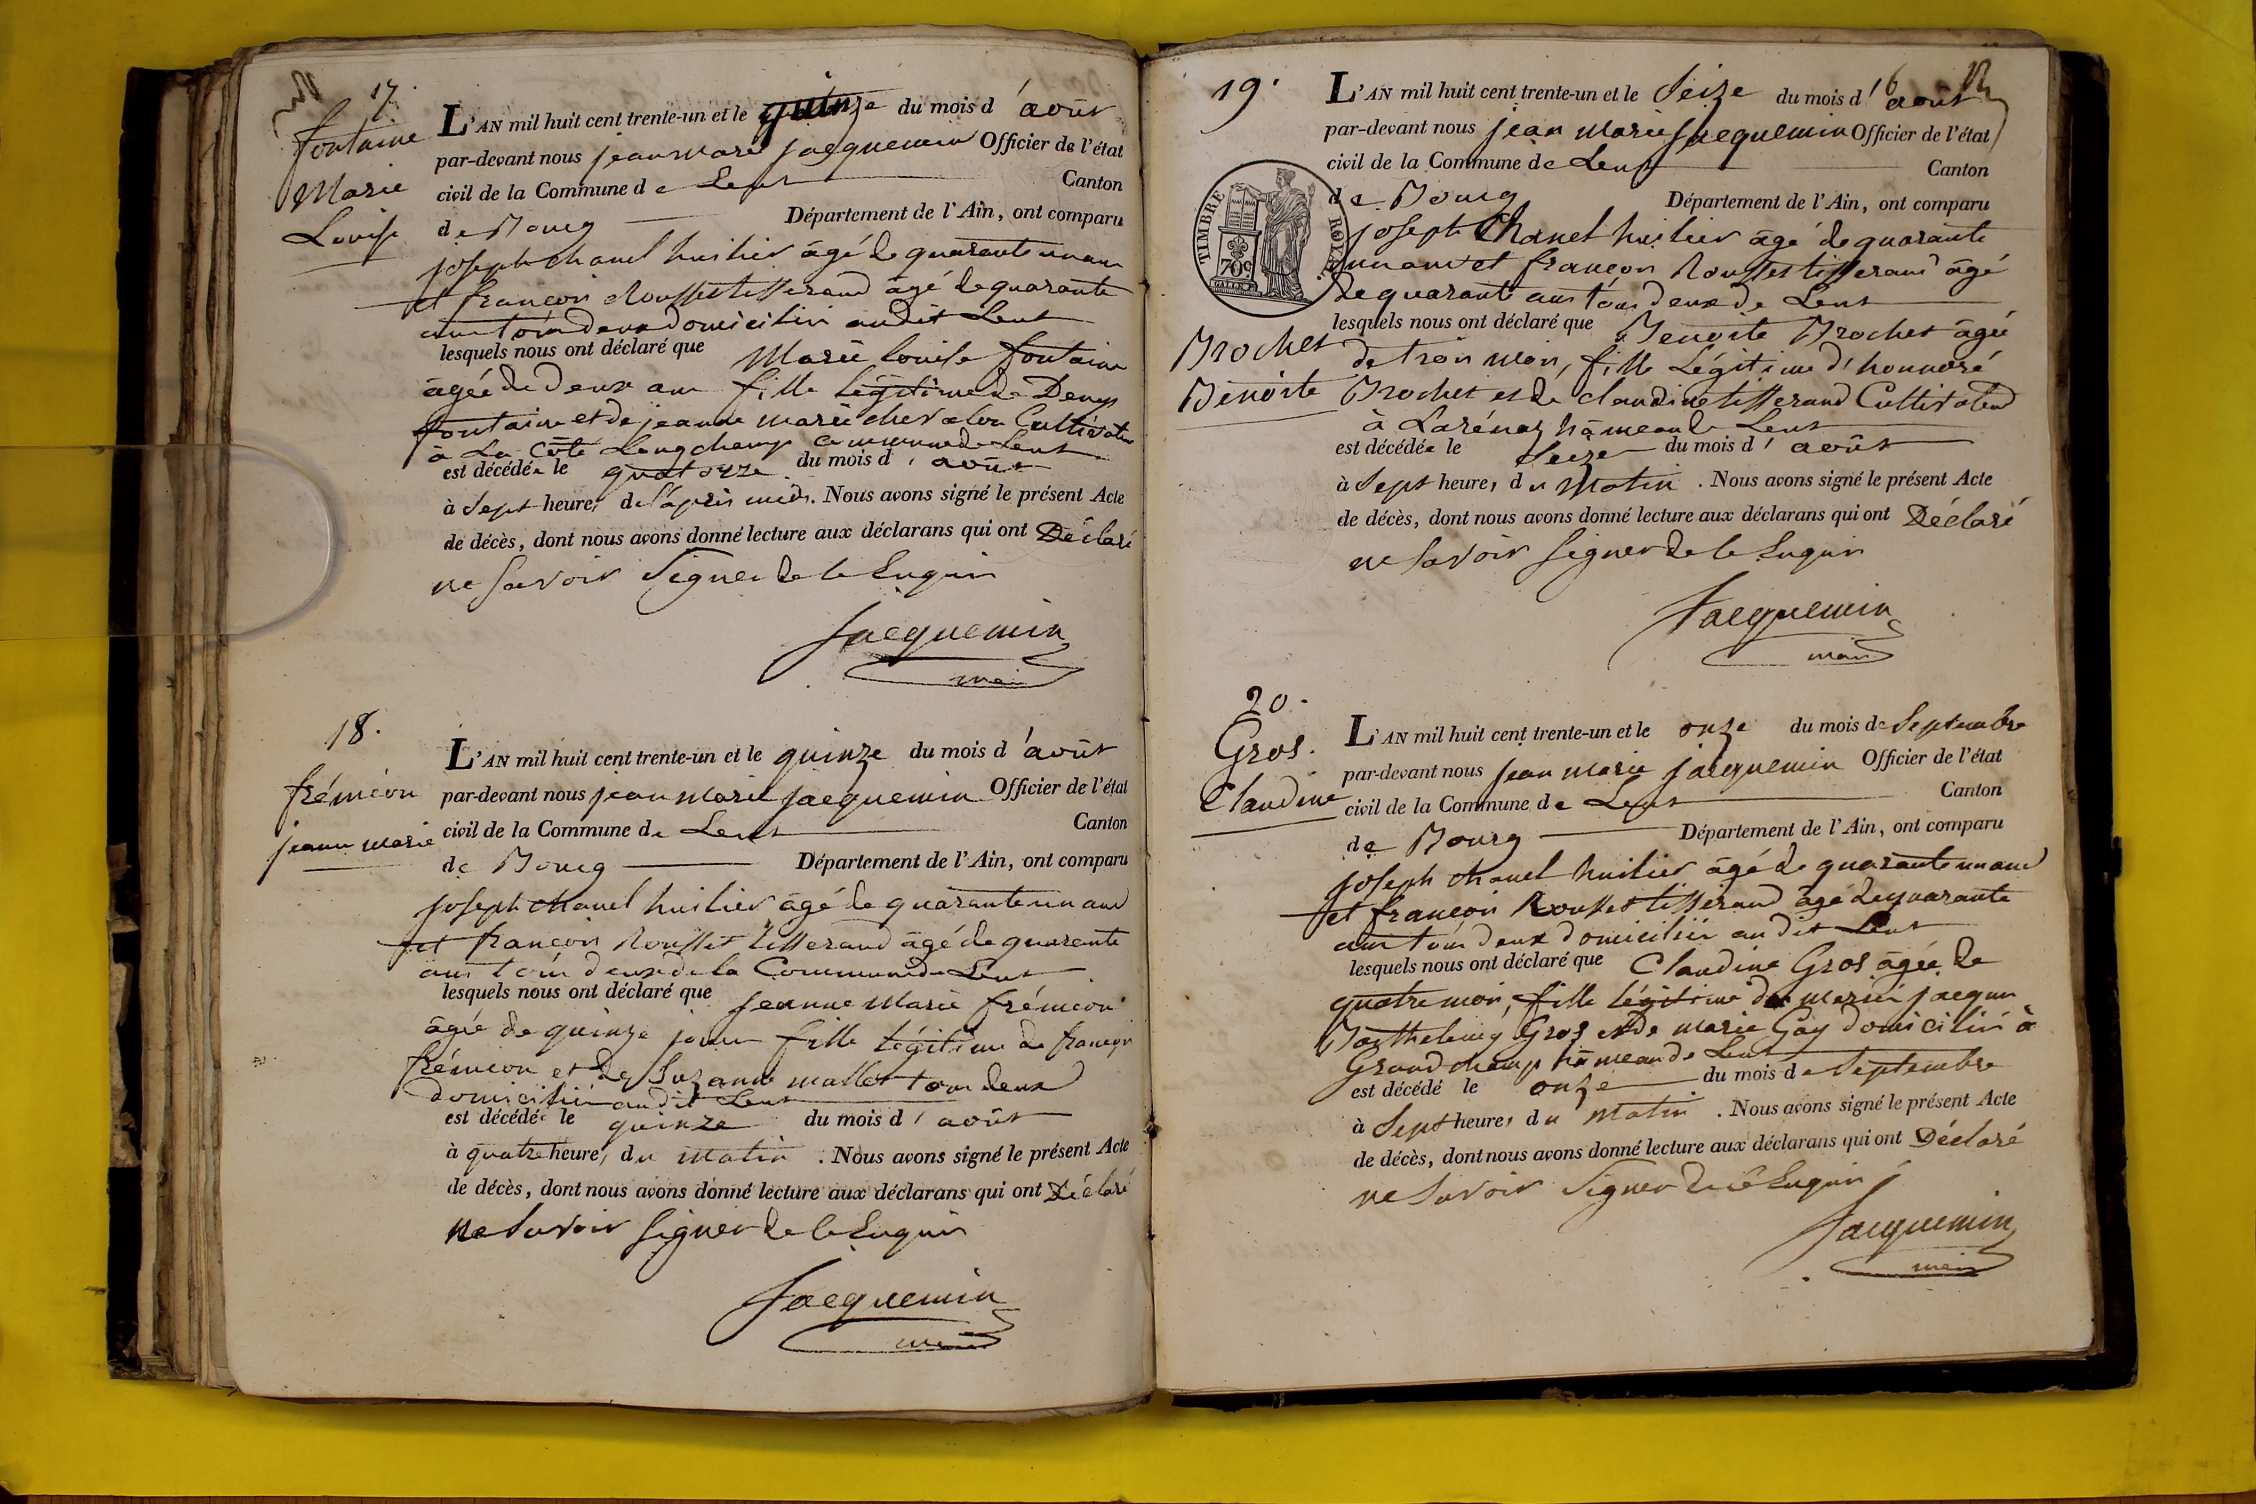 17.
fontaine
Marie
Louise
L'AN mil huit cent trente-un et le quinze du mois d'août
par-devant nous jean marie jacquemin Officier de l'état
civil de la Commune de Lent Canton
de Bourg Département de l'Ain, ont comparu
joseph chanel huilier âgé de quarante un ans
et françois Rousset tisserand âgé de quarante
ans tous deux domiciliés audit Lent
lesquels nous ont déclaré que Marie louise fontaine
âgée de deux ans fille légitime de Denys
fontaine et de jeanne marie chevalon Cultivateur
à La Côte Longchamp commune de Lent
est décédée le quatorze du mois d'août
à sept heures de l'après midi. Nous avons signé le présent Acte
de décès, dont nous avons donné lecture aux déclarans qui ont Déclaré
ne savoir signer de le Enquis
Jacquemin
maire
18.
frémion
jeanne marie
L'AN mil huit cent trente-un et le quinze du mois d'août
par-devant nous jean marie jacquemin Officier de l'état
civil de la Commune de Lent Canton
de Bourg Département de l'Ain, ont comparu
joseph chanel huilier âgé de quarante un ans
et françois Rousset tisserand âgé de quarante
ans tous deux de la Commune de Lent
lesquels nous ont déclaré que jeanne Marie frémion
âgée de quinze jours fille légitime de françois
frémion et de Suzanne mallet tous deux
domiciliés audit Lent
est décédée le quinze du mois d'août
à quatre heures du matin. Nous avons signé le présent Acte
de décès, dont nous avons donné lecture aux déclarans qui ont Déclaré
ne savoir signer de le Enquis
Jacquemin
maire
16
19.
TIMBRE ROYAL
70c
Brochet
Benoite
L'AN mil huit cent trente-un et le Seize du mois d'août
par-devant nous jean marie jacquemin Officier de l'état
civil de la Commune de Lent Canton
de Bourg Département de l'Ain, ont comparu
joseph Chanel huilier âgé de quarante
un ans et françois Rousset tisserand âgé
de quarante ans tous deux de Lent
lesquels nous ont déclaré que Benoite Brochet âgée
de trois mois, fille Légitime d'honnoré
Brochet et de claudine tisserand Cultivateur
à Larénaz hâmeau de Lent
est décédée le Seize du mois d'août
à Sept heures du Matin. Nous avons signé le présent Acte
de décès, dont nous avons donné lecture aux déclarans qui ont Déclaré
ne savoir signer de le Enquis
Jacquemin
maire
20.
Gros.
Claudine
L'AN mil huit cent trente-un et le onze du mois de Septembre
par-devant nous jean marie jacquemin Officier de l'état
civil de la Commune de Lent Canton
de Bourg Département de l'Ain, ont comparu
joseph chanel huilier âgé de quarante un ans
et françois Rousset tisserand âgé de quarante
ans tous deux domiciliés audit Lent
lesquels nous ont déclaré que Claudine Gros âgée de
quatre mois, fille légitime de
Barthelemy Gros et de marie Gay domiciliés à
Grandchamp hâmeau de Lent
est décédé le onze du mois de Septembre
à Sept heures du matin. Nous avons signé le présent Acte
de décès, dont nous avons donné lecture aux déclarans qui ont Déclaré
ne savoir signer de ce Enquis
Jacquemin
maire